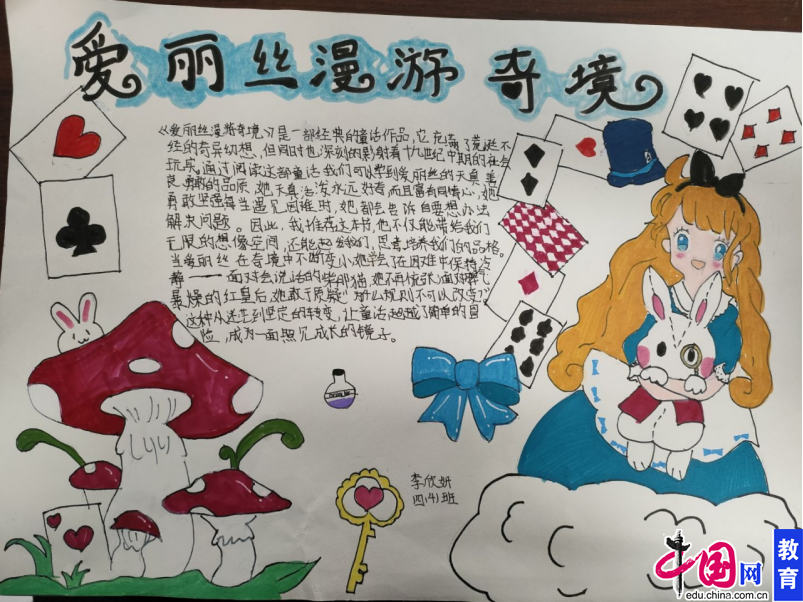 爱丽丝漫游奇境
《爱丽丝漫游奇境》是一部经典的童话作品，它充满了荒诞不
经的奇异幻想，但同时也深刻的影射着十九世纪中期的社会
现实，通过阅读这部童话我们可以学到爱丽丝的天真善
良，勇敢的品质，她天真活泼永远好奇而且富有同情心，她
勇敢坚强每当遇见困难时，她都会告诉自要想办法
解决问题。因此，我推荐这本书，他不仅能带给我们
无限的想像空间，还能起发我们，思考培养我们的品格。
当爱丽丝在奇境中不断变小，她学会了在困难中保持冷
静——面对会说话的柴郡猫，她不再慌张；面对脾气
暴燥的红皇后，她敢于质疑"那么规则不可以改变？"
这种从迷茫到坚定的转变，让童话超越了简单的冒
险，成为一面照见成长的镜子。
李欣妍
四(4)班
中国网
edu.china.com.cn
教育